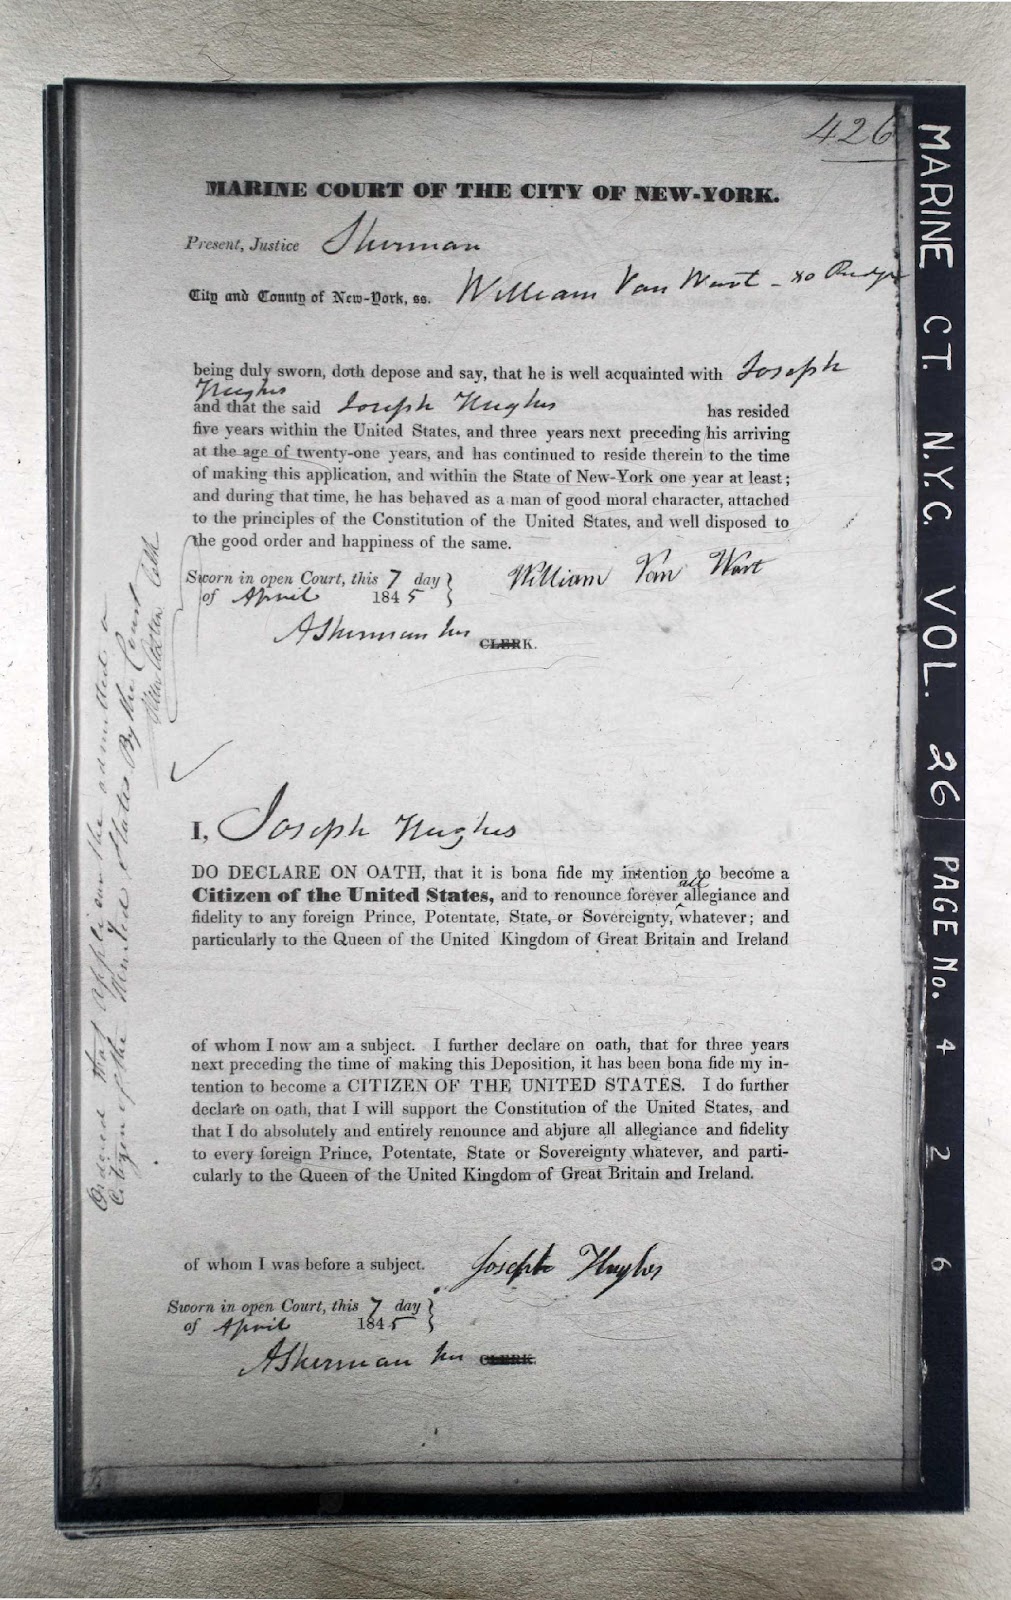 426
MARINE COURT OF THE CITY OF NEW-YORK.
Present, Justice Sherman
City and County of New-York, ss. William Van Wart - 80
being duly sworn, doth depose and say, that he is well acquainted with Joseph
Hughes
and that the said Joseph Hughes has resided
five years within the United States, and three years next preceding his arriving
at the age of twenty-one years, and has continued to reside therein to the time
of making this application, and within the State of New-York one year at least;
and during that time, he has behaved as a man of good moral character, attached
to the principles of the Constitution of the United States, and well disposed to
the good order and happiness of the same.
Sworn in open Court, this 7 day
of April 1845
William Van Wart
ASherman
CLERK.
I, Joseph Hughes
DO DECLARE ON OATH, that it is bona fide my intention to become a
Citizen of the United States, and to renounce forever all allegiance and
fidelity to any foreign Prince, Potentate, State, or Sovereignty, whatever; and
particularly to the Queen of the United Kingdom of Great Britain and Ireland
of whom I now am a subject. I further declare on oath, that for three years
next preceding the time of making this Deposition, it has been bona fide my in-
tention to become a CITIZEN OF THE UNITED STATES. I do further
declare on oath, that I will support the Constitution of the United States, and
that I do absolutely and entirely renounce and abjure all allegiance and fidelity
to every foreign Prince, Potentate, State or Sovereignty whatever, and parti-
cularly to the Queen of the United Kingdom of Great Britain and Ireland.
of whom I was before a subject. Joseph Hughes
Sworn in open Court, this 7 day
of April 1845
ASherman CLERK.
Ordered that Applicant be admitted a
Citizen of the United States By the Court
Clerk
MARINE CT. N.Y.C. VOL. 26 PAGE No. 426